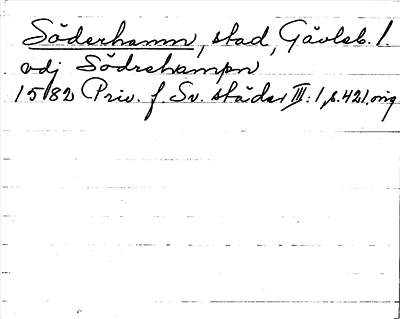 Söderhamn, stad, Gävleb. l.
vdj Södrehampn
1582 Priv. f. Sv. städer III: 1, s. 421, orig